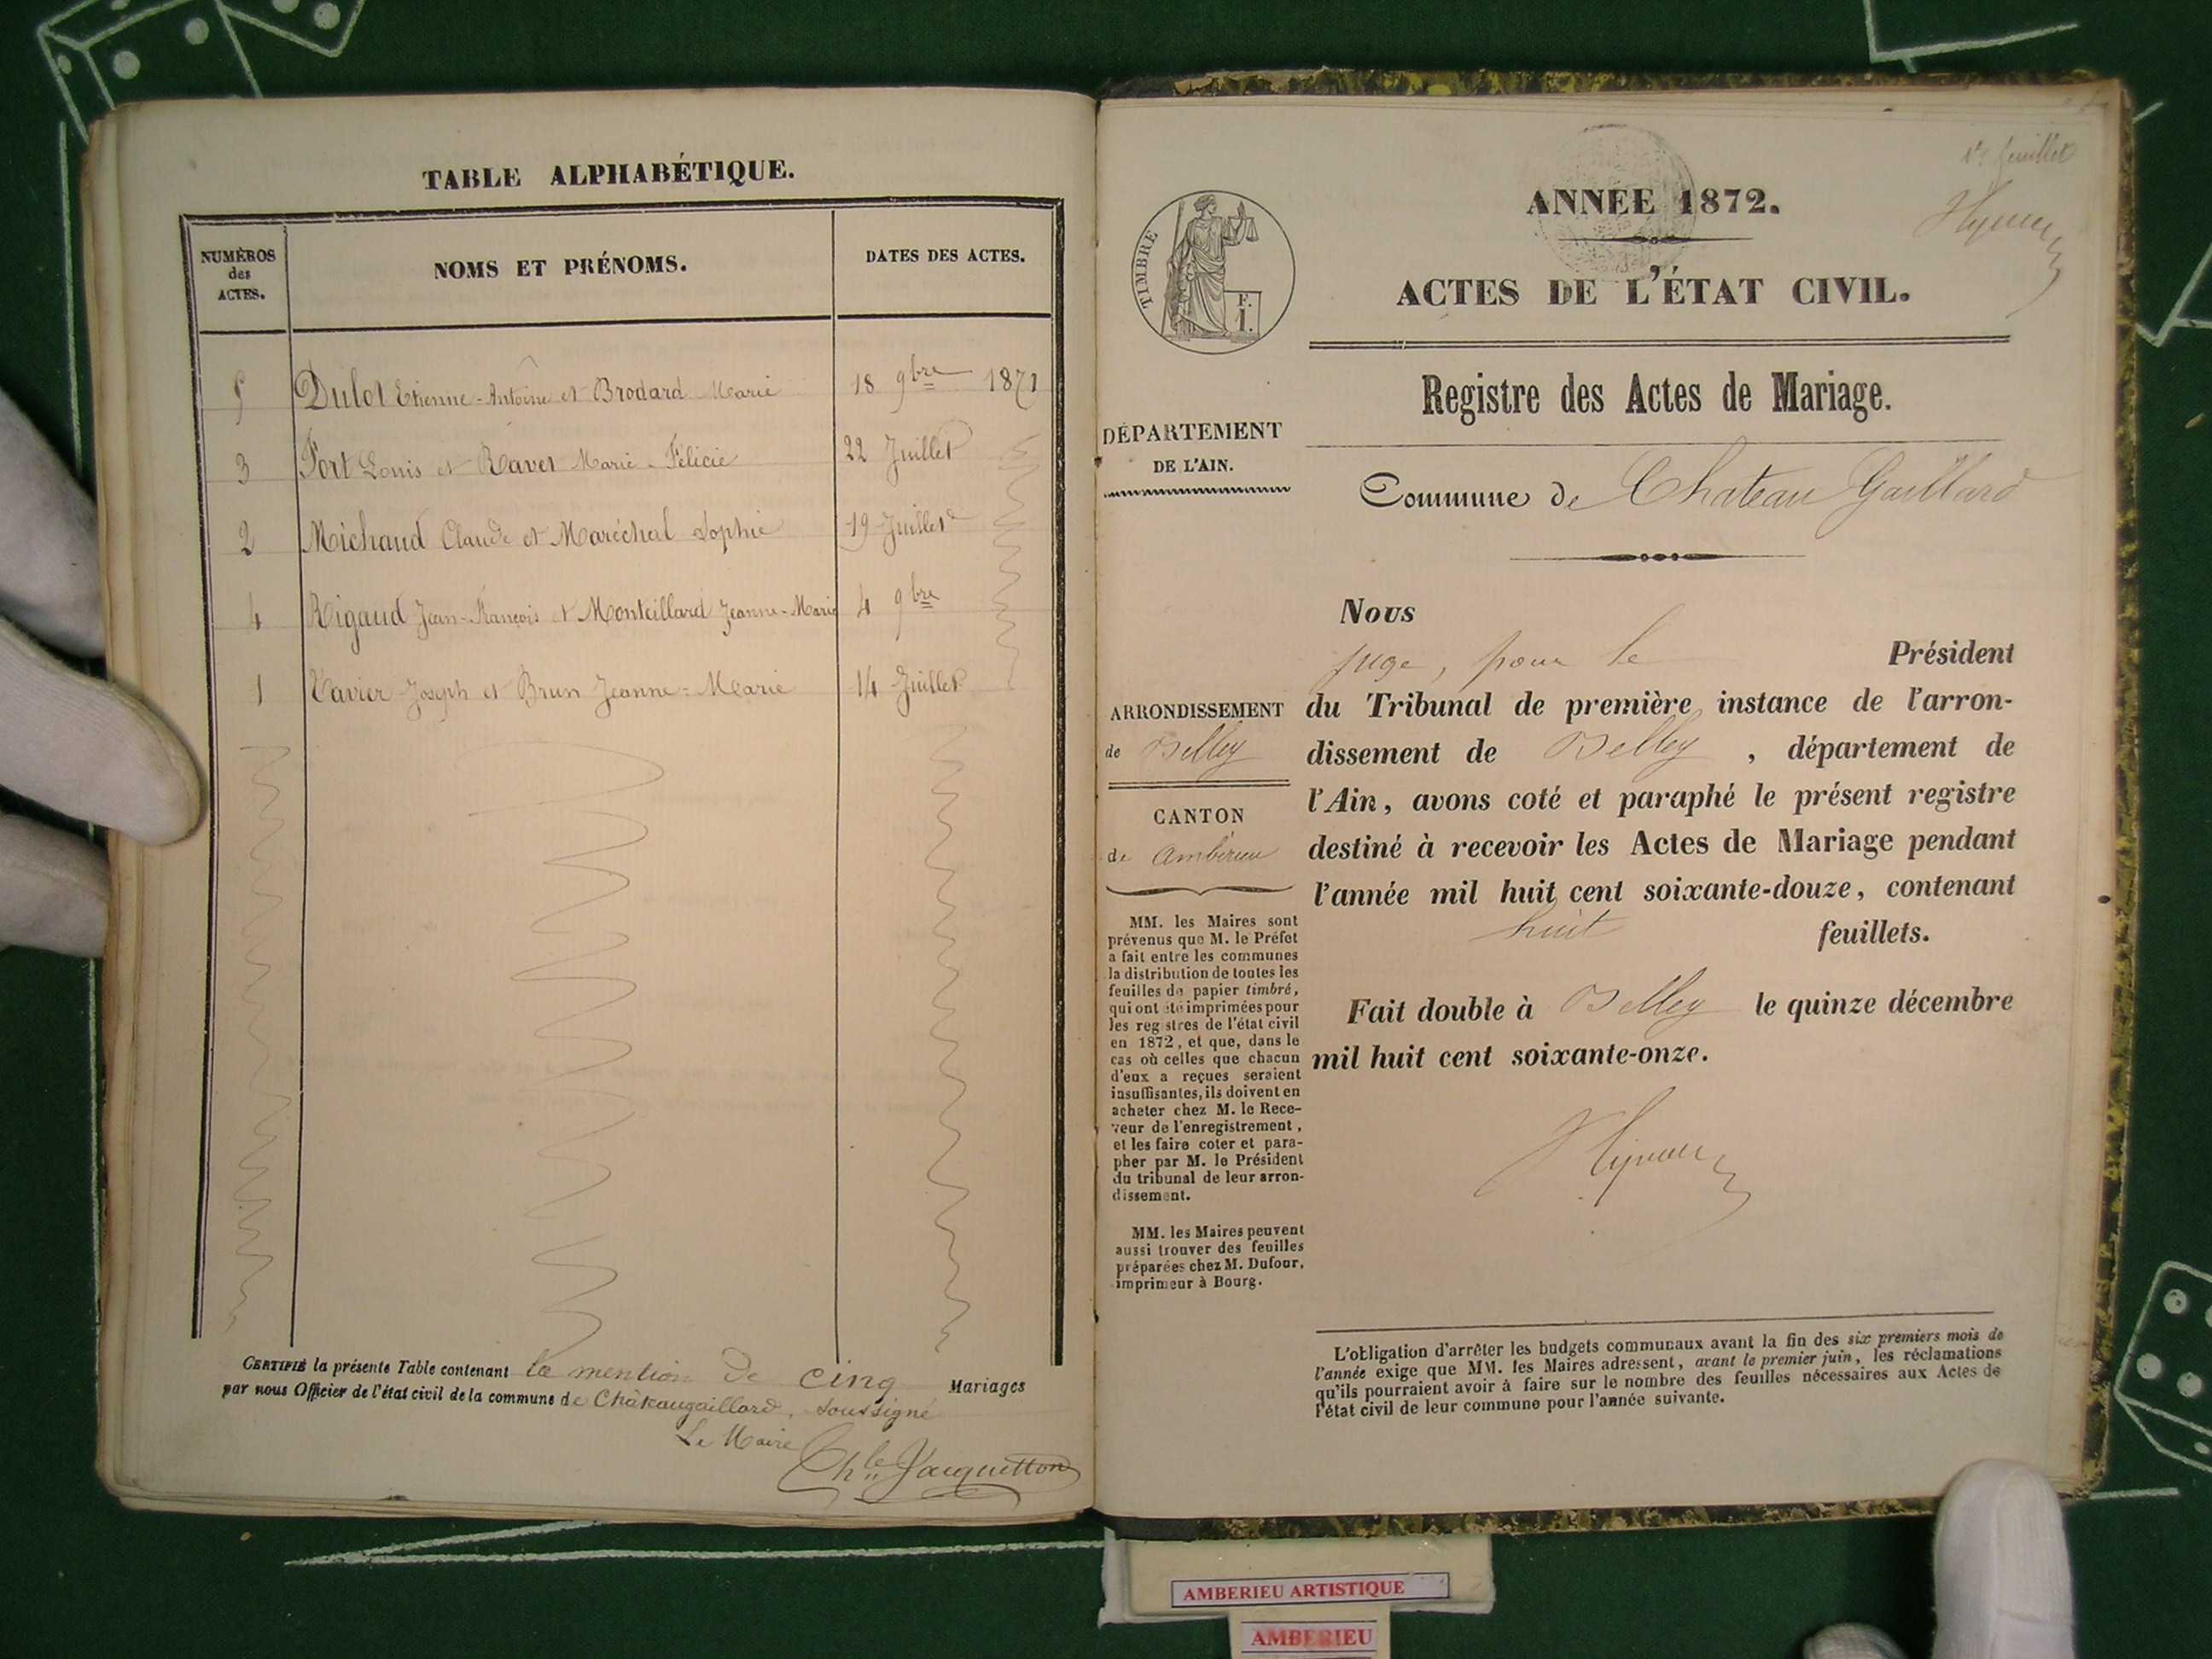 TABLE ALPHABÉTIQUE.
NUMÉROS
des
ACTES.
NOMS ET PRÉNOMS.
DATES DES ACTES.
5 Dulot Etienne-Antoine et Brodard Marie 18 9bre 1871
3 Fort Louis et Ravet Marie-Félicie 22 Juillet
2 Michaud Claude et Maréchal Sophie 19 Juillet
4 Rigaud Jean-François et Monteillard Jeanne-Marie 4 9bre
1 Vavier Joseph et Brun Jeanne-Marie 14 Juillet
CERTIFIÉ la présente Table contenant la mention de cinq Mariages
par nous Officier de l'état civil de la commune de Châteaugaillard, soussigné
Le Maire
Ch.le Jacquetton
1er feuillet
TIMBRE
F.
1.
ANNÉE 1872.
ACTES DE L'ÉTAT CIVIL.
Registre des Actes de Mariage.
DÉPARTEMENT
DE L'AIN.
Commune de Chateau Gaillard
ARRONDISSEMENT
de Belley
CANTON
de Ambérieu
MM. les Maires sont
prévenus que M. le Préfet
a fait entre les communes
la distribution de toutes les
feuilles de papier timbré,
qui ont été imprimées pour
les registres de l'état civil
en 1872, et que, dans le
cas où celles que chacun
d'eux a reçues seraient
insuffisantes, ils doivent en
acheter chez M. le Rece-
veur de l'enregistrement,
et les faire coter et para-
pher par M. le Président
du tribunal de leur arron-
dissement.
MM. les Maires peuvent
aussi trouver des feuilles
préparées chez M. Dufour,
imprimeur à Bourg.
Nous
juge, pour le Président
du Tribunal de première instance de l'arron-
dissement de Belley, département de
l'Ain, avons coté et paraphé le présent registre
destiné à recevoir les Actes de Mariage pendant
l'année mil huit cent soixante-douze, contenant
huit feuillets.
Fait double à Belley le quinze décembre
mil huit cent soixante-onze.
L'obligation d'arrêter les budgets communaux avant la fin des six premiers mois de
l'année exige que MM. les Maires adressent, avant le premier juin, les réclamations
qu'ils pourraient avoir à faire sur le nombre des feuilles nécessaires aux Actes de
l'état civil de leur commune pour l'année suivante.
AMBERIEU ARTISTIQUE
AMBERIEU